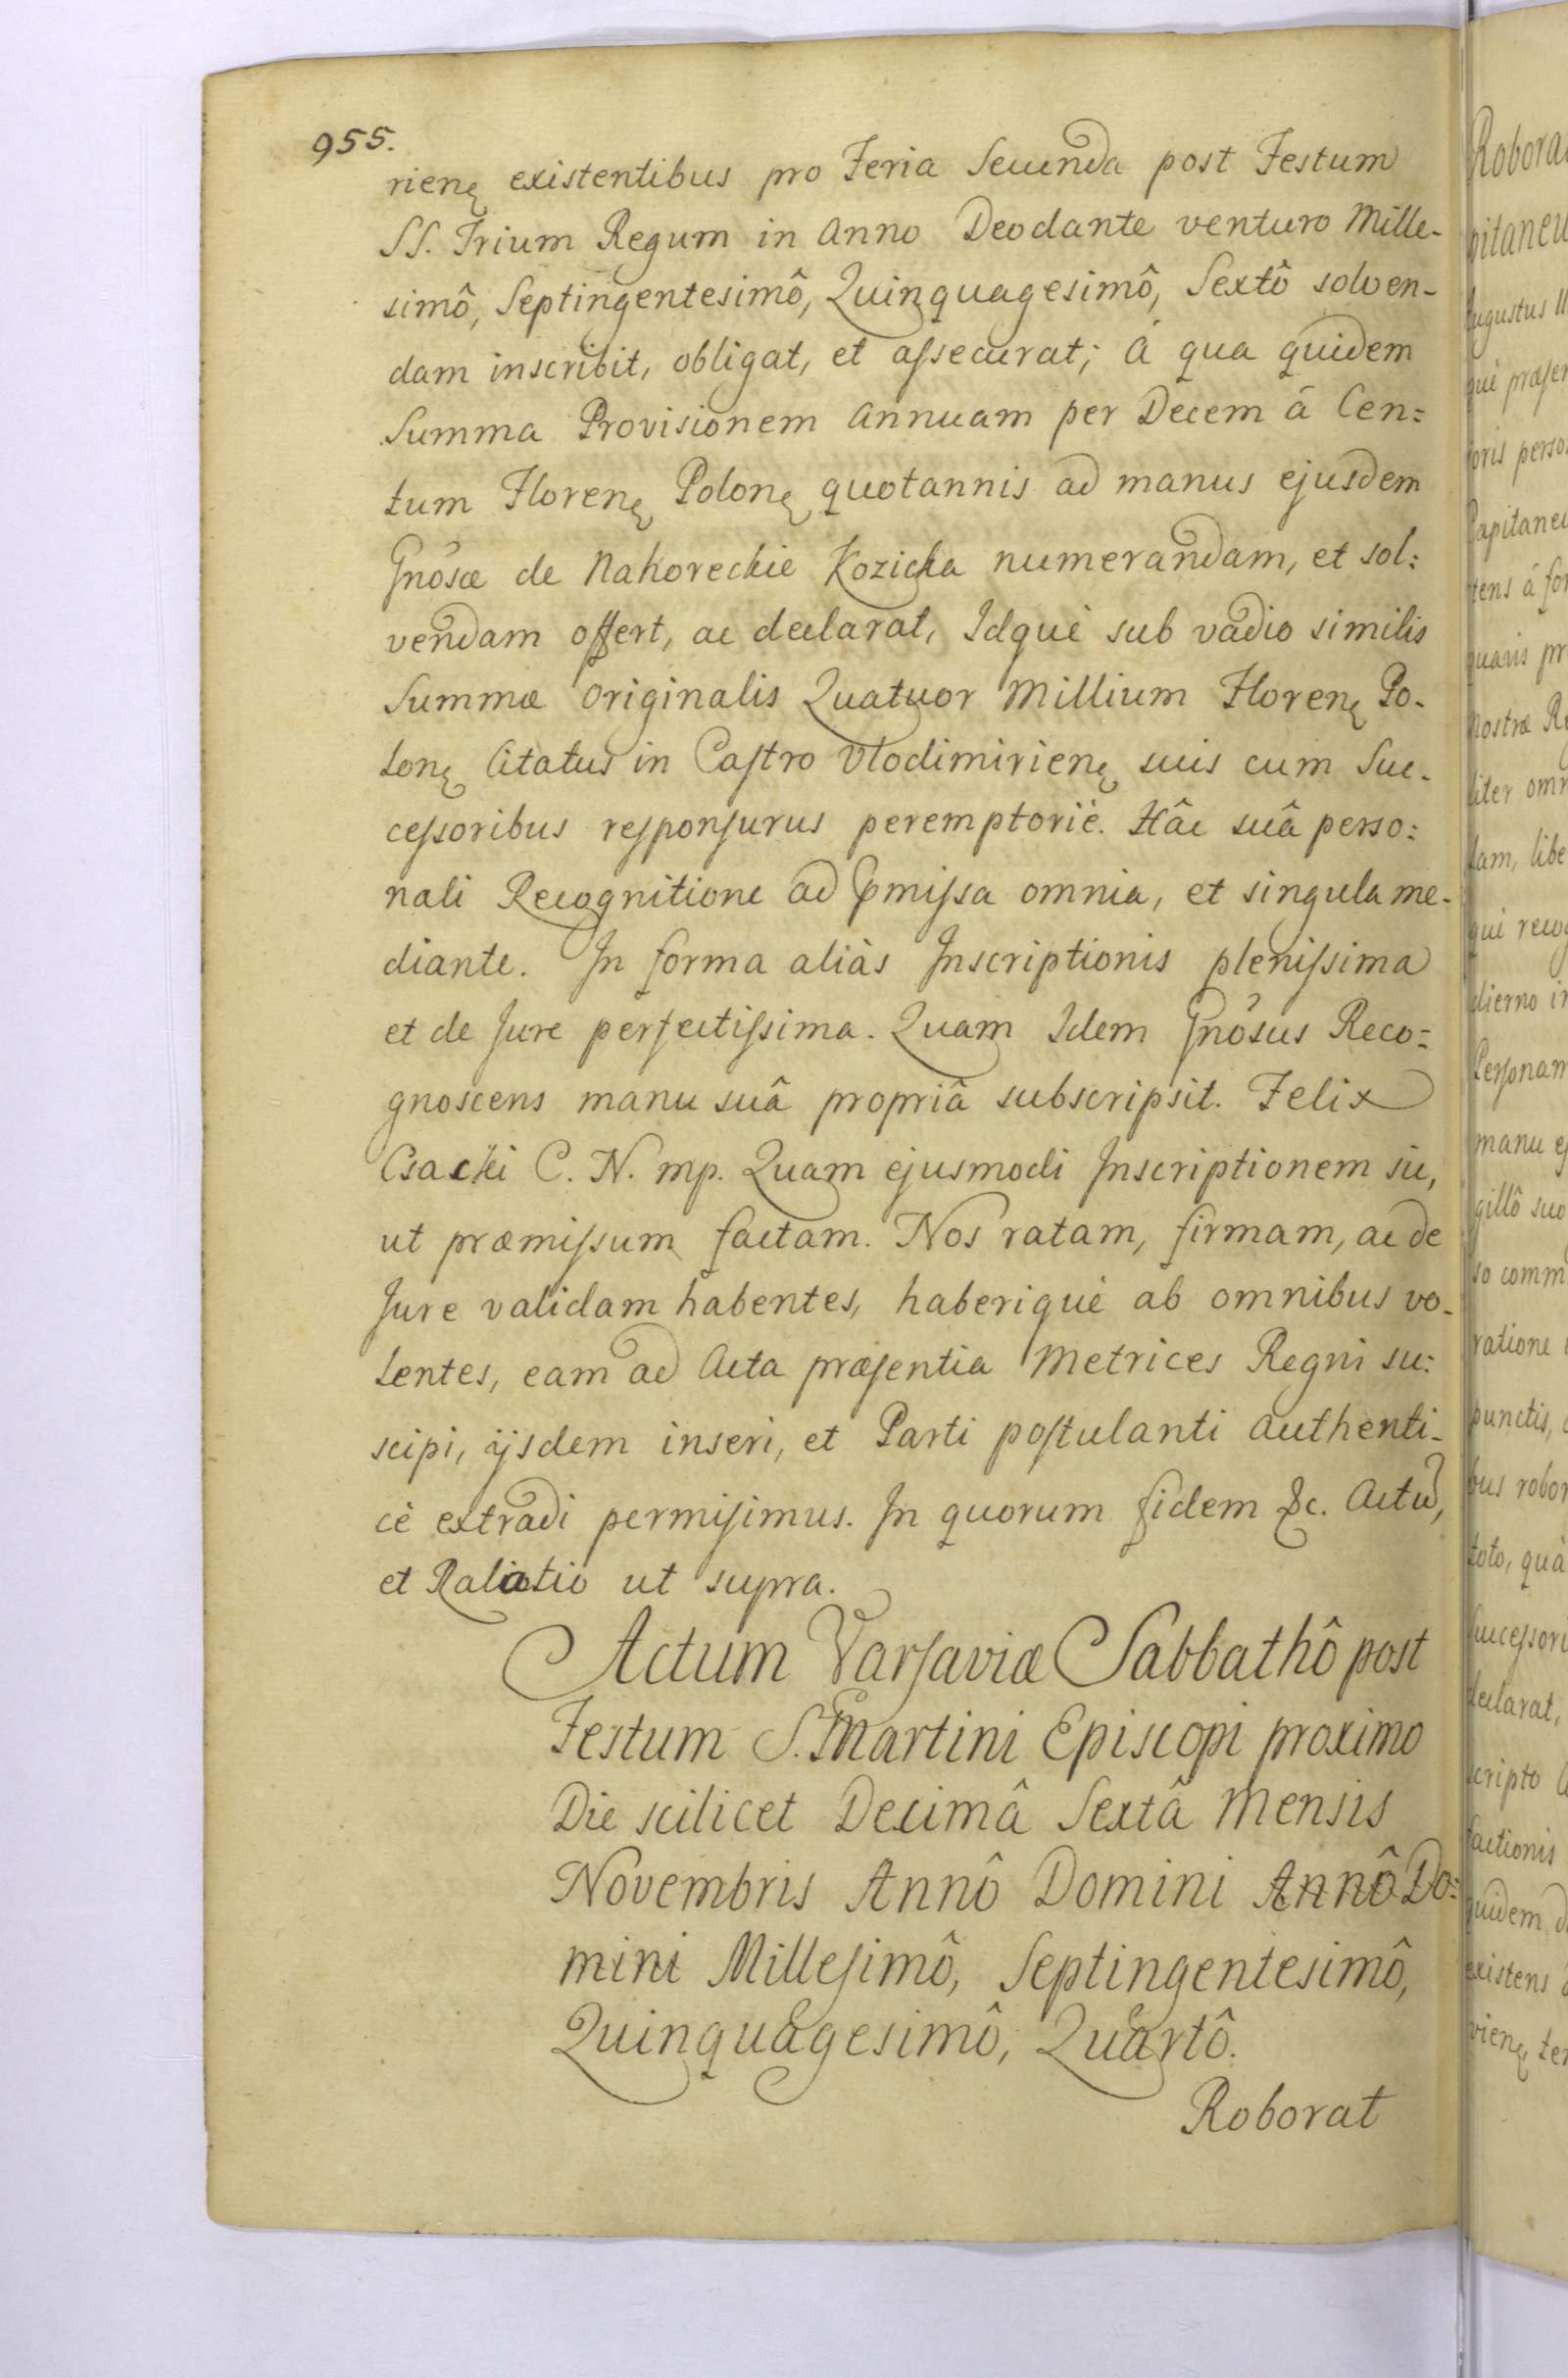 955.
rienę existentibus pro Feria Secunda post Festum
SS. Trium Regum in Anno Deodante venturo Mille-
simô, Septingentesimô, Quinquagesimô, Sextô solven-
dam inscribit, obligat, et assecurat; á qua quidem
Summa Provisionem Annuam per Decem á Cen:
tum Florenę Polonę quotannis ad manus ejusdem
Gnosæ de Nahoreckie Kozicka numerandam, et sol:
vendam offert, ac declarat, Idquè sub vadio similis
Summæ Originalis Quatuor Millium Florenę Po-
lonę Citatus in Castro Vlodimirienę suis cum Suc-
cessoribus responsurus peremptoriè. Hâc suâ perso:
nali Recognitione ad pmissa omnia, et singula me-
diante. In forma aliàs Inscriptionis plenissima
et de Jure perfectissima. Quam Idem Gnosus Reco:
gnoscens manu suâ propriâ subscripsit. Felix
Czacki C. N. mp. Quam ejusmodi Inscriptionem sic,
ut præmissum factam. Nos ratam, firmam, ac de
Jure validam habentes, haberiquè ab omnibus vo-
lentes, eam ad Acta præsentia Metrices Regni su:
scipi, ijsdem inseri, et Parti postulanti Authenti-
cè extradi permisimus. In quorum fidem &c. Actũ,
et Raliatio ut supra.
Actum Varsaviæ Sabbathô post
Festum S. Martini Episcopi proximo
Die scilicet Decimâ Sextâ Mensis
Novembris Annô Domini Annô Do:
mini Millesimô, Septingentesimô,
Quinquagesimô, Quartô.
Roborat